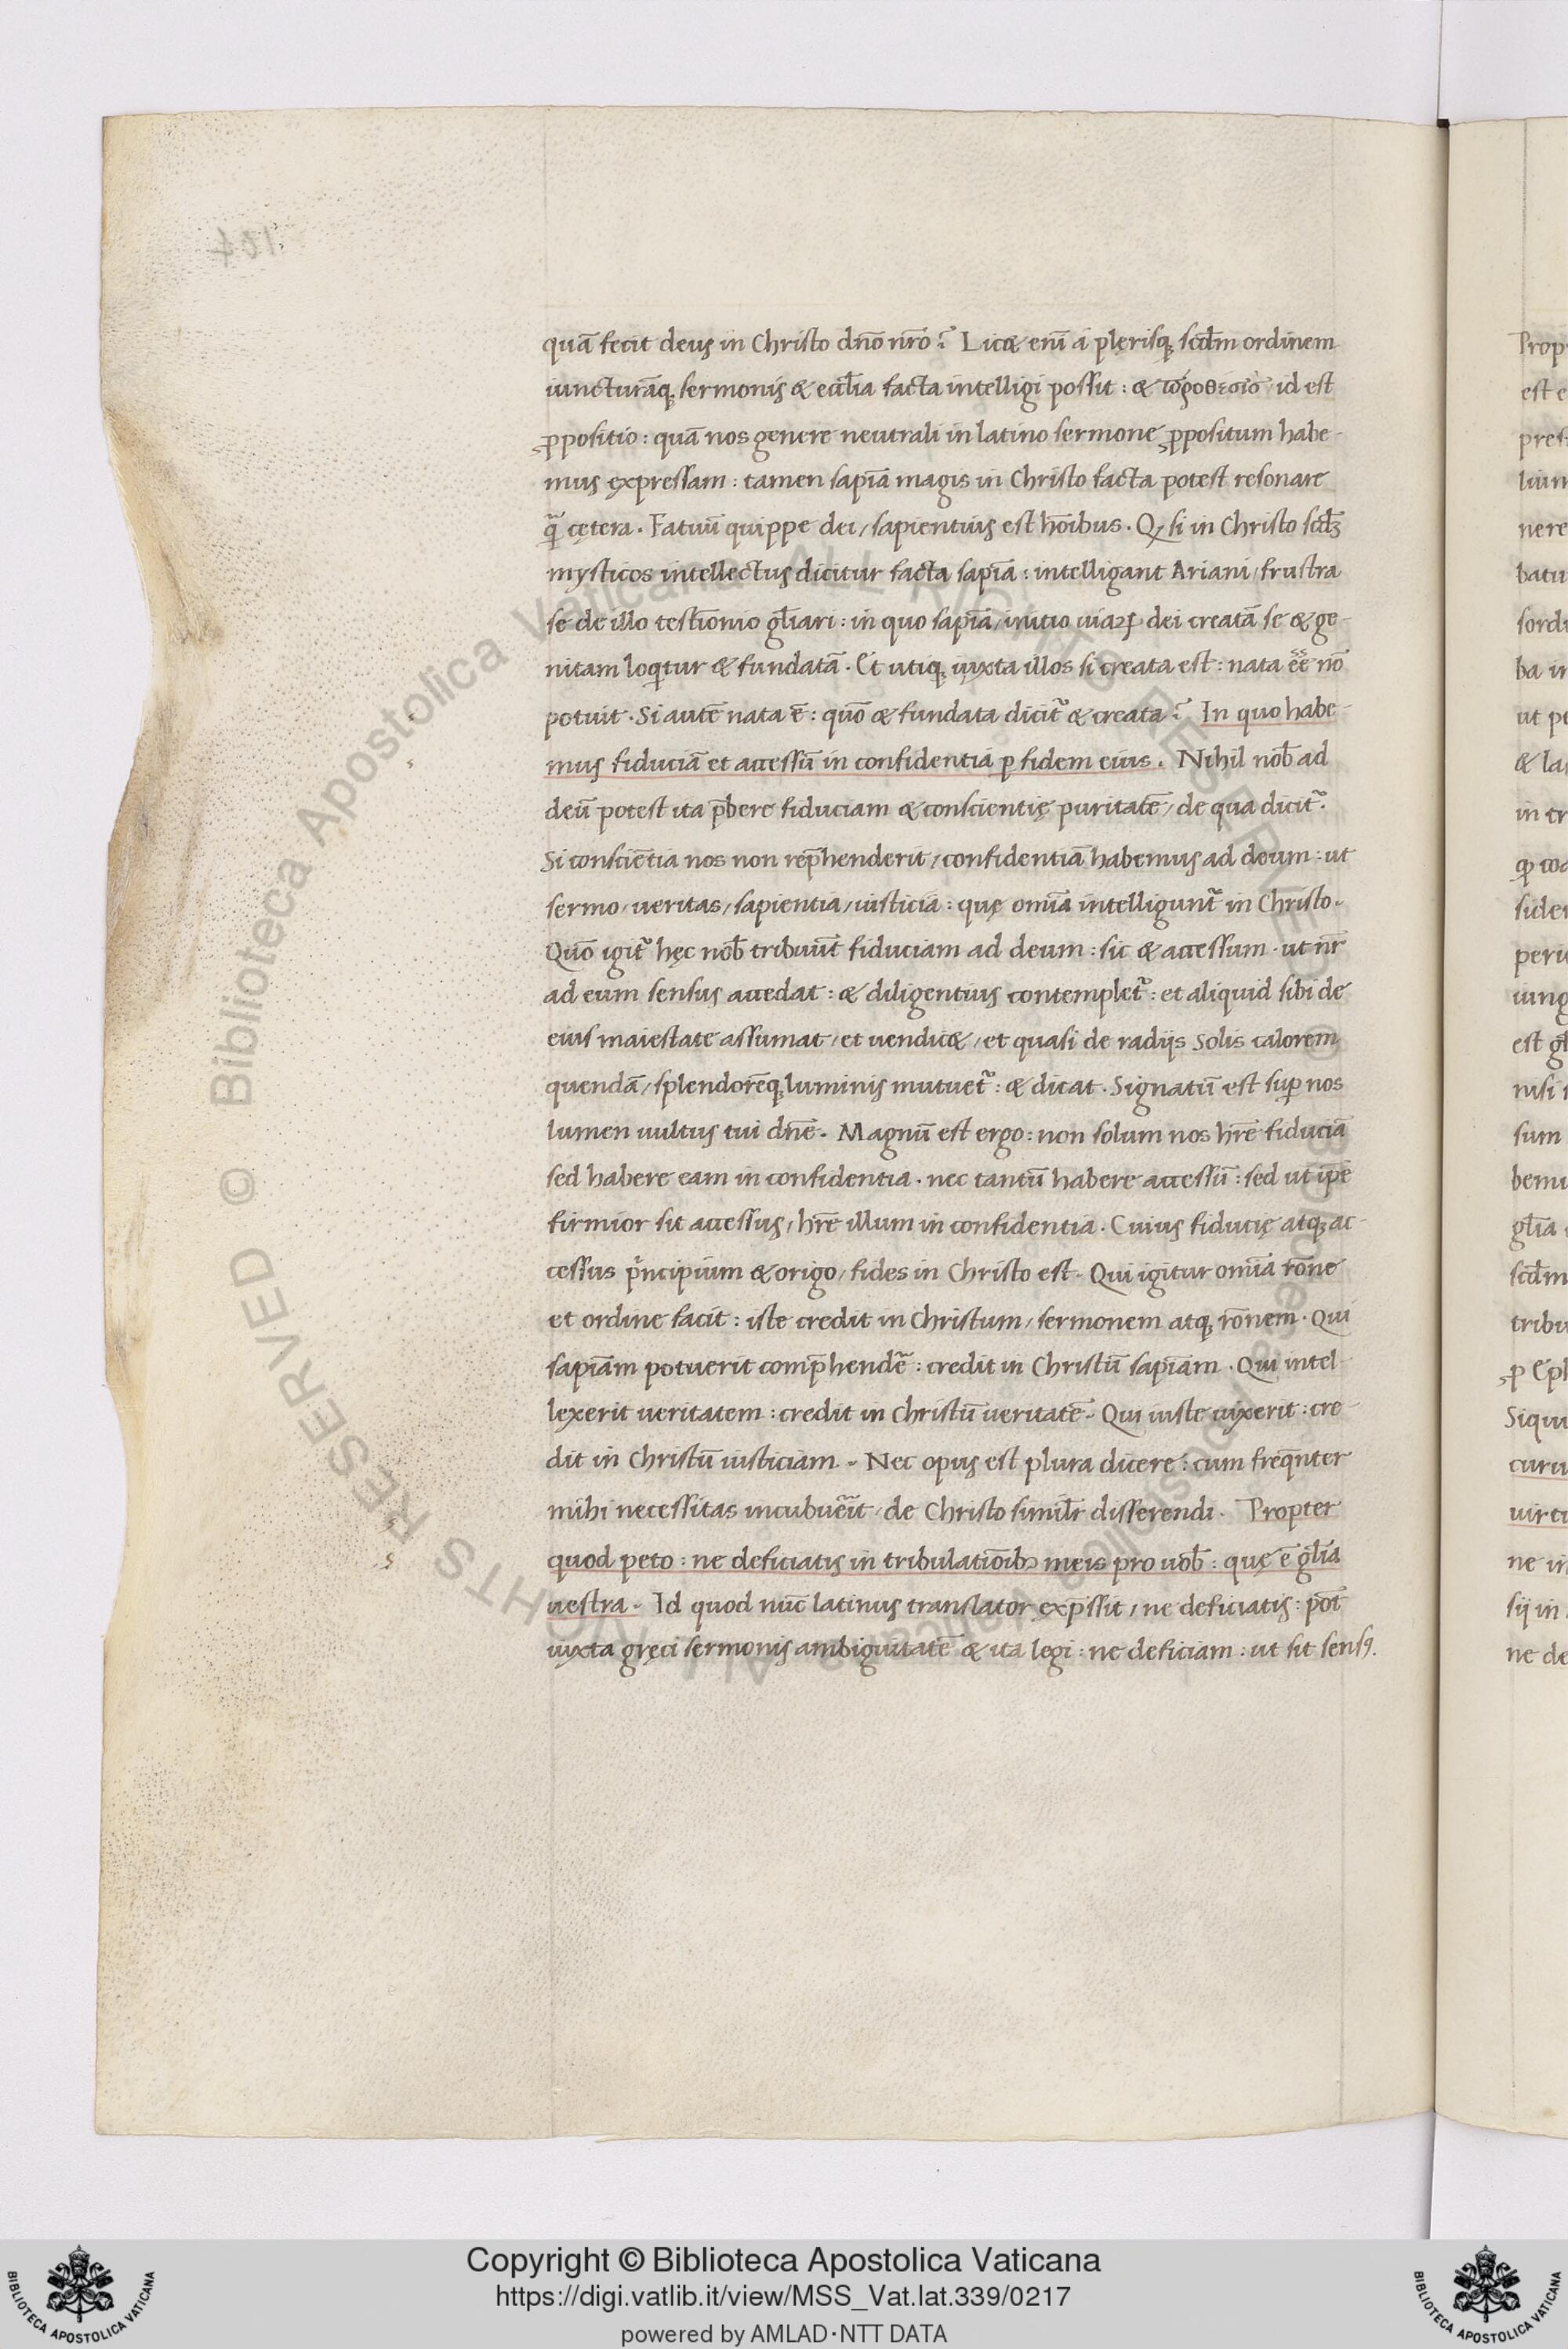 quā fecit deus in Christo dño nr̄o? Licet eni᷃ a plerisq; scd̄m ordinem
iuncturāq; sermonis & eccl̄ia facta intelligi possit : & πρόθεσις id est
ꝓpositio : quā nos genere neutrali in latino sermone ꝓpositum habe-
mus expressam : tamen sapiā magis in Christo facta potest resonare
q̄ cętera . Fatuū quippe dei / sapientius est hōibus . Qꝫ si in Christo scdꝫ
mysticos intellectus dicitur facta sapiā : intelligant Ariani / frustra
se de illo testīonio gl̄iari : in quo sapiā / initio uiaꝝ dei creatā se & ge-
nitam loqtur & fundatā . Et utiq; iuxta illos si creata est : nata eē nō
potuit . Si autē nata ē : quō & fundata dicit᷑ & creata ? In quo habe-
mus fiduciā et accessū in confidentia ꝑ fidem eius . Nihil nob̄ ad
deū potest ita p̄bere fiduciam & conscientię puritatē / de qua dicit᷑.
Si consciētia nos non rep̄henderit / confidentiā habemus ad deum : ut
sermo / ueritas / sapientia / iusticia : quę omīa intelligunt᷑ in Christo .
Quō igit᷑ hęc nob̄ tribuūt fiduciam ad deum : sic & accessum . ut nr̄
ad eum sensus accedat : & diligentius contemplet᷑ : et aliquid sibi de
eius maiestate assumat / et uendicet / et quasi de radijs Solis calorem
quendā / splendorēq; luminis mutuet᷑ : & dicat . Signatū est suꝑ nos
lumen uultus tui dn̄e . Magnū est ergo : non solum nos hr̄e fiduciā
sed habere eam in confidentia . nec tantū habere accessū : sed ut ip̄e
firmior sit accessus / hr̄e illum in confidentia . Cuius fiducię atq; ac-
cessus pⁱncipium & origo / fides in Christo est . Qui igitur omīa rōne
et ordine facit : iste credit in Christum / sermonem atq; rōnem . Qui
sapiām potuerit comp̄hendē : credit in Christū sapiām . Qui intel-
lexerit ueritatem : credit in Christū ueritatē . Qui iuste uixerit : cre-
dit in Christū iusticiam . Nec opus est plura dicere : cum freqn̄ter
mihi necessitas incubuēit / de Christo simil̄r disserendi . Propter
quod peto : ne deficiatis in tribulatiōibꝫ meis pro uob̄ : quę ē gl̄ia
uestra . Id quod nūc latinus translator exp̄ssit / ne deficiatis : pōt
iuxta gręci sermonis ambiguitatē & ita legi : ne deficiam : ut sit sensꝰ.
s
s
Prop
est e
pres
lium
nere
batu
sord
ba in
ut pe
& la
in tr
side
peri
iung
est gl
nisi
sum
bemu
gl̄ia
scd̄m
tribu
Siqui
curu
uirtu
ne in
sij in
ne de
© Biblioteca Apostolica Vaticana ALL RIGHTS RESERVED
Copyright © Biblioteca Apostolica Vaticana
https://digi.vatlib.it/view/MSS_Vat.lat.339/0217
powered by AMLAD·NTT DATA
BIBLIOTECA APOSTOLICA VATICANA
BIBLIOTECA APOSTOLICA VATICANA